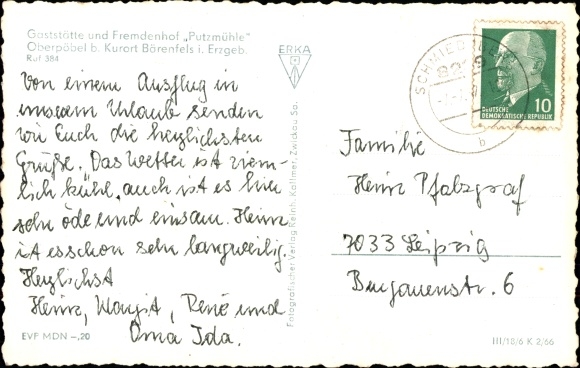 Gaststätte und Fremdenhof „Putzmühle"
Oberpöbel b. Kurort Bärenfels i. Erzgeb.
Ruf 384
ERKA
Von einem Ausflug in
unserem Urlaub senden
wir Euch die herzlichsten
Grüße. Das Wetter ist ziem-
lich kühl, auch ist es hier
sehr öde und einsam. Heinz
ist es schon sehr langweilig.
Herzlichst
Heinz, Margit, René und
Oma Ida.
EVP MDN -,20
Fotografischer Verlag Reinh. Kallmer, Zwickau Sa.
SCHMIEDEBERG
b
DEUTSCHE
DEMOKRATISCHE REPUBLIK
10
Familie
Heinz Pfalzgraf
7033 Leipzig
6
III/18/6 K 2/66